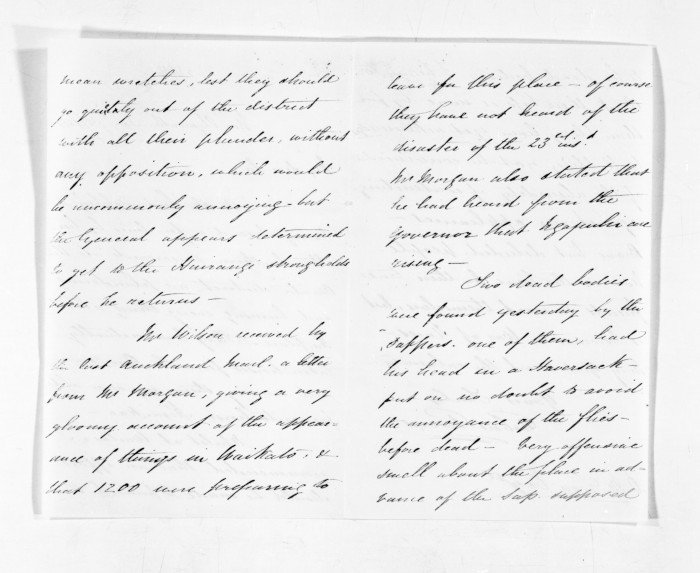 mean wretches, lest they should
go quietly out of the district
with all their plunder, without
any opposition, which would
be uncommonly annoying - but
the General appears determined
to get to the Huirangi strongholds
before he returns -
Mr Wilson received by
the last Auckland Mail. a letter
from Mr Morgan, giving a very
gloomy account of the appear-
ance of things in Waikato. &
that 1200 were preparing to
leave for this place - of course
they have not heard of the
disaster of the 23rd inst.
Mr Morgan also stated that
he had heard from the
Governor that Ngapuhi are
rising -
Two dead bodies
were found yesterday by the
Sappers. one of them, had
his head in a Haversack -
put on no doubt to avoid
the annoyance of the flies -
before dead - Very offensive
smell about the place in ad-
vance of the Sap supposed